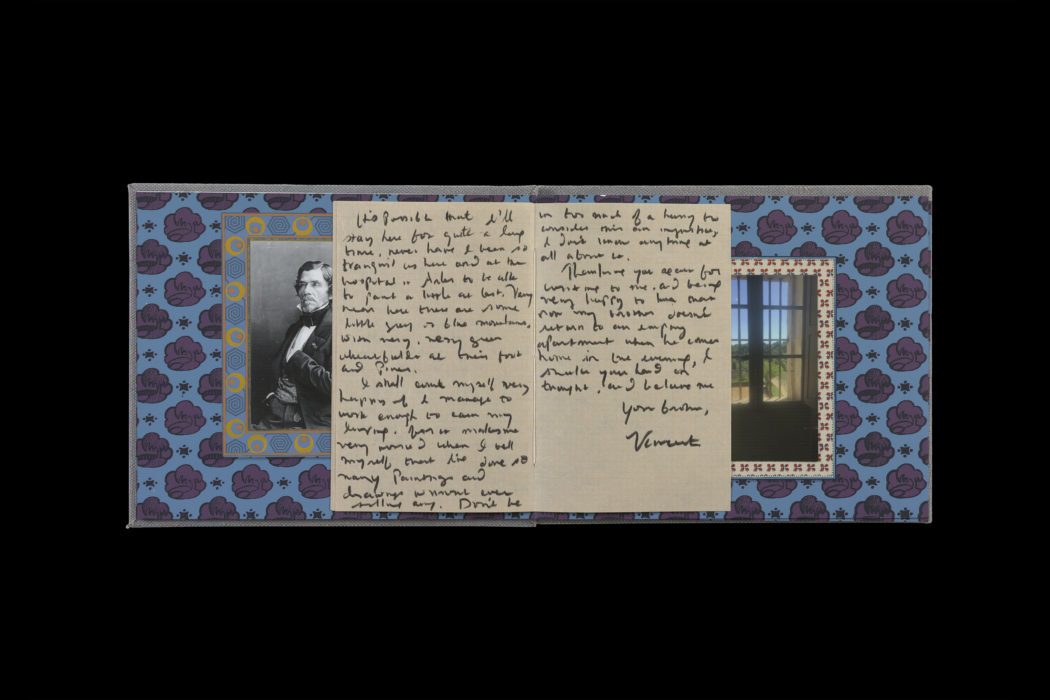 It's Possible that I'll
stay here for quite a long
time, never have I been so
tranquil as here and at the
hospital in Arles to be able
to paint a little at last. Very
near here there are some
little grey or blue mountains,
with very, very green
wheatfields at their foot
and Pines.
I shall count myself very
happy if I manage to
work enough to earn my
living, for it makes me
very worried when I tell
myself that I've done so
many Paintings and
drawings without ever
selling any. Don't be
in too much of a hurry to
consider this an injustice,
I don't know anything at
all about it.
Thanking you again for
writing to me and being
very happy to hear that
now my brother doesn't
return to an empty
apartment when he comes
home in the evening, I
shake your hand in
thought, and believe me
Your brother,
Vincent